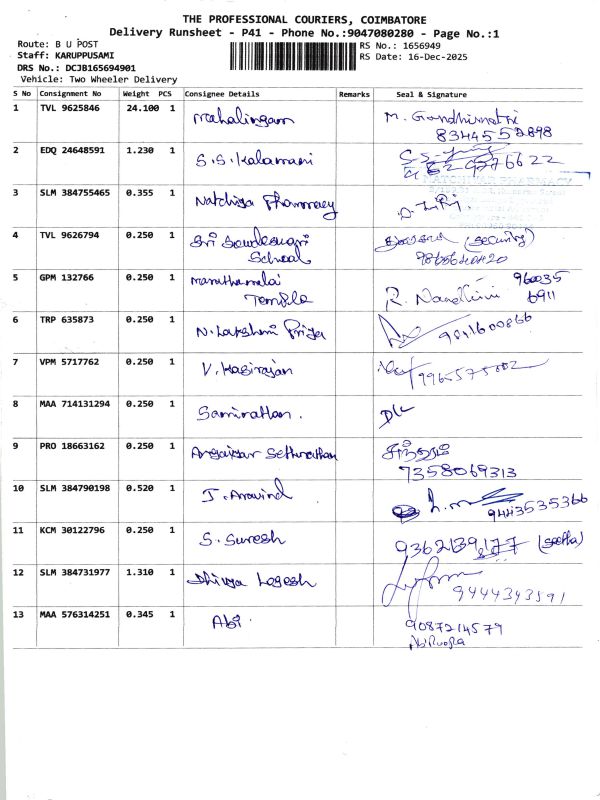 THE PROFESSIONAL COURIERS, COIMBATORE
Delivery Runsheet - P41 - Phone No.:9047080280 - Page No.:1
Route: B U POST RS No.: 1656949
Staff: KARUPPUSAMI RS Date: 16-Dec-2025
DRS No.: DCJB165694901
Vehicle: Two Wheeler Delivery
S No Consignment No Weight PCS Consignee Details Remarks Seal & Signature
1 TVL 9625846 24.100 1 Mahalingam M. Gandhimathi
2 EDQ 24648591 1.230 1 S.S. Kalamani
3 SLM 384755465 0.355 1 Natchiya Pharmacy
4 TVL 9626794 0.250 1 Sri Sowdeswari (security)
School
5 GPM 132766 0.250 1 Maruthamalai R. Nandhini 960035
Temple 6911
6 TRP 635873 0.250 1 N. Lakshmi Priya 9841600866
7 VPM 5717762 0.250 1 V. Kasirajan 9965575002
8 MAA 714131294 0.250 1 Saminathan.
9 PRO 18663162 0.250 1 Sethunathan
7358069313
10 SLM 384790198 0.520 1 J. Aravind 9443535366
11 KCM 30122796 0.250 1 S. Suresh 9362139177
12 SLM 384731977 1.310 1 Dhivya Logesh 9444343591
13 MAA 576314251 0.345 1 Abi 9087214579